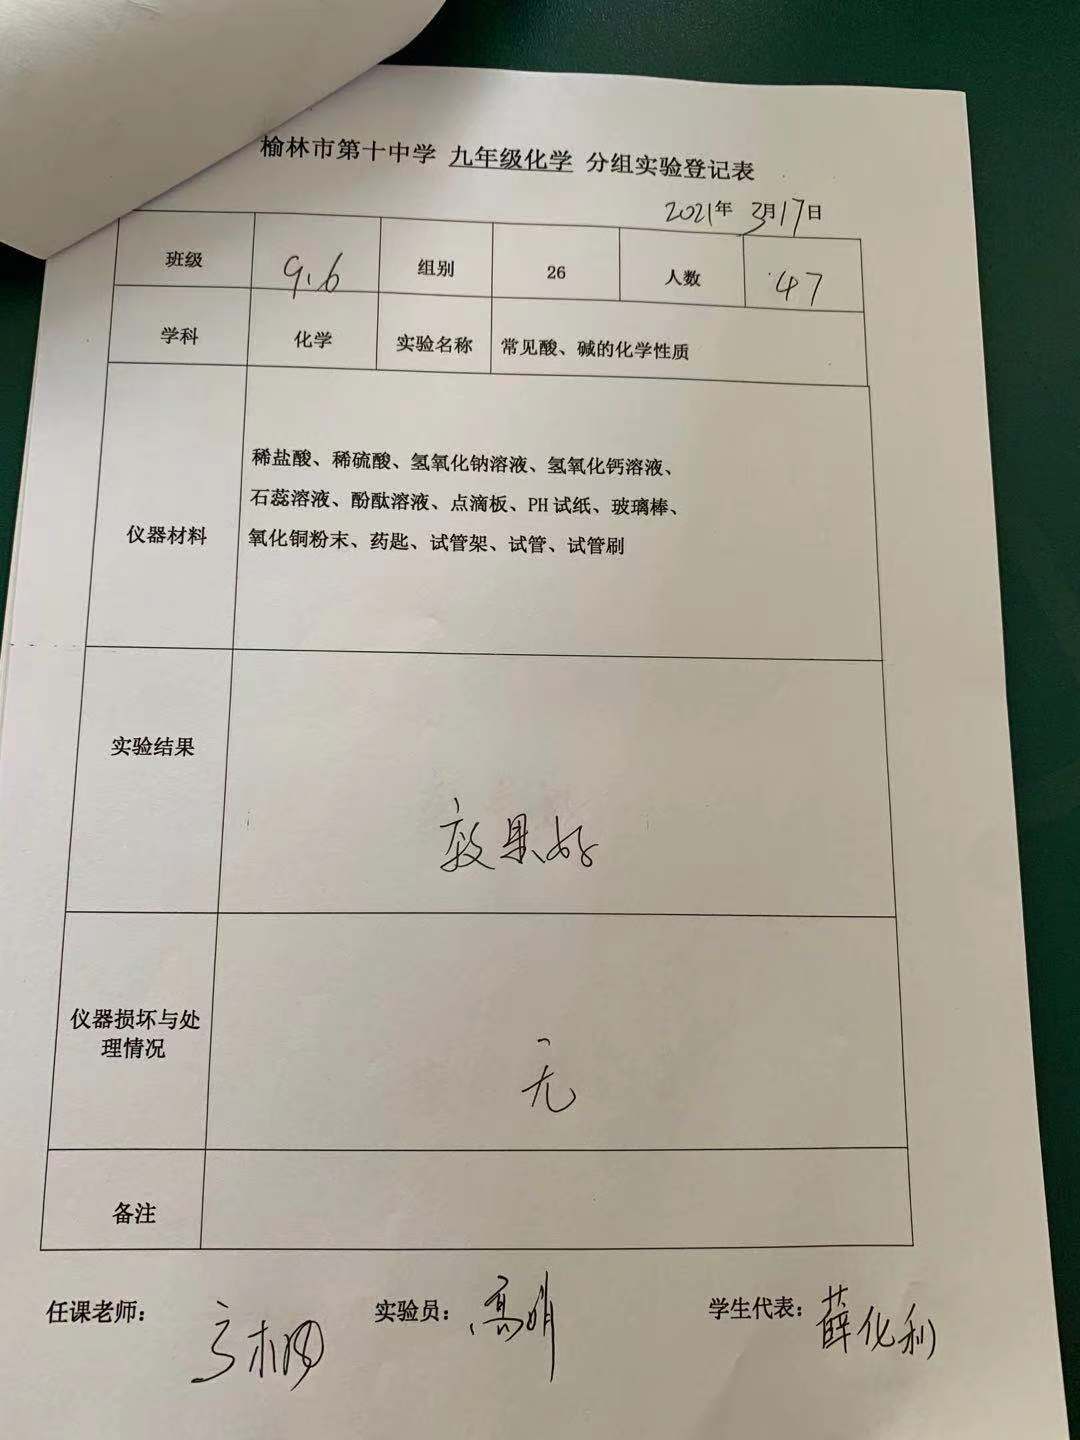 榆林市第十中学 九年级化学 分组实验登记表
2021年 3月17日
班级 9.6 组别 26 人数 47
学科 化学 实验名称 常见酸、碱的化学性质
仪器材料
稀盐酸、稀硫酸、氢氧化钠溶液、氢氧化钙溶液、
石蕊溶液、酚酞溶液、点滴板、PH试纸、玻璃棒、
氧化铜粉末、药匙、试管架、试管、试管刷
实验结果
效果好
仪器损坏与处
理情况
无
备注
任课老师： 实验员：高 学生代表：薛化利